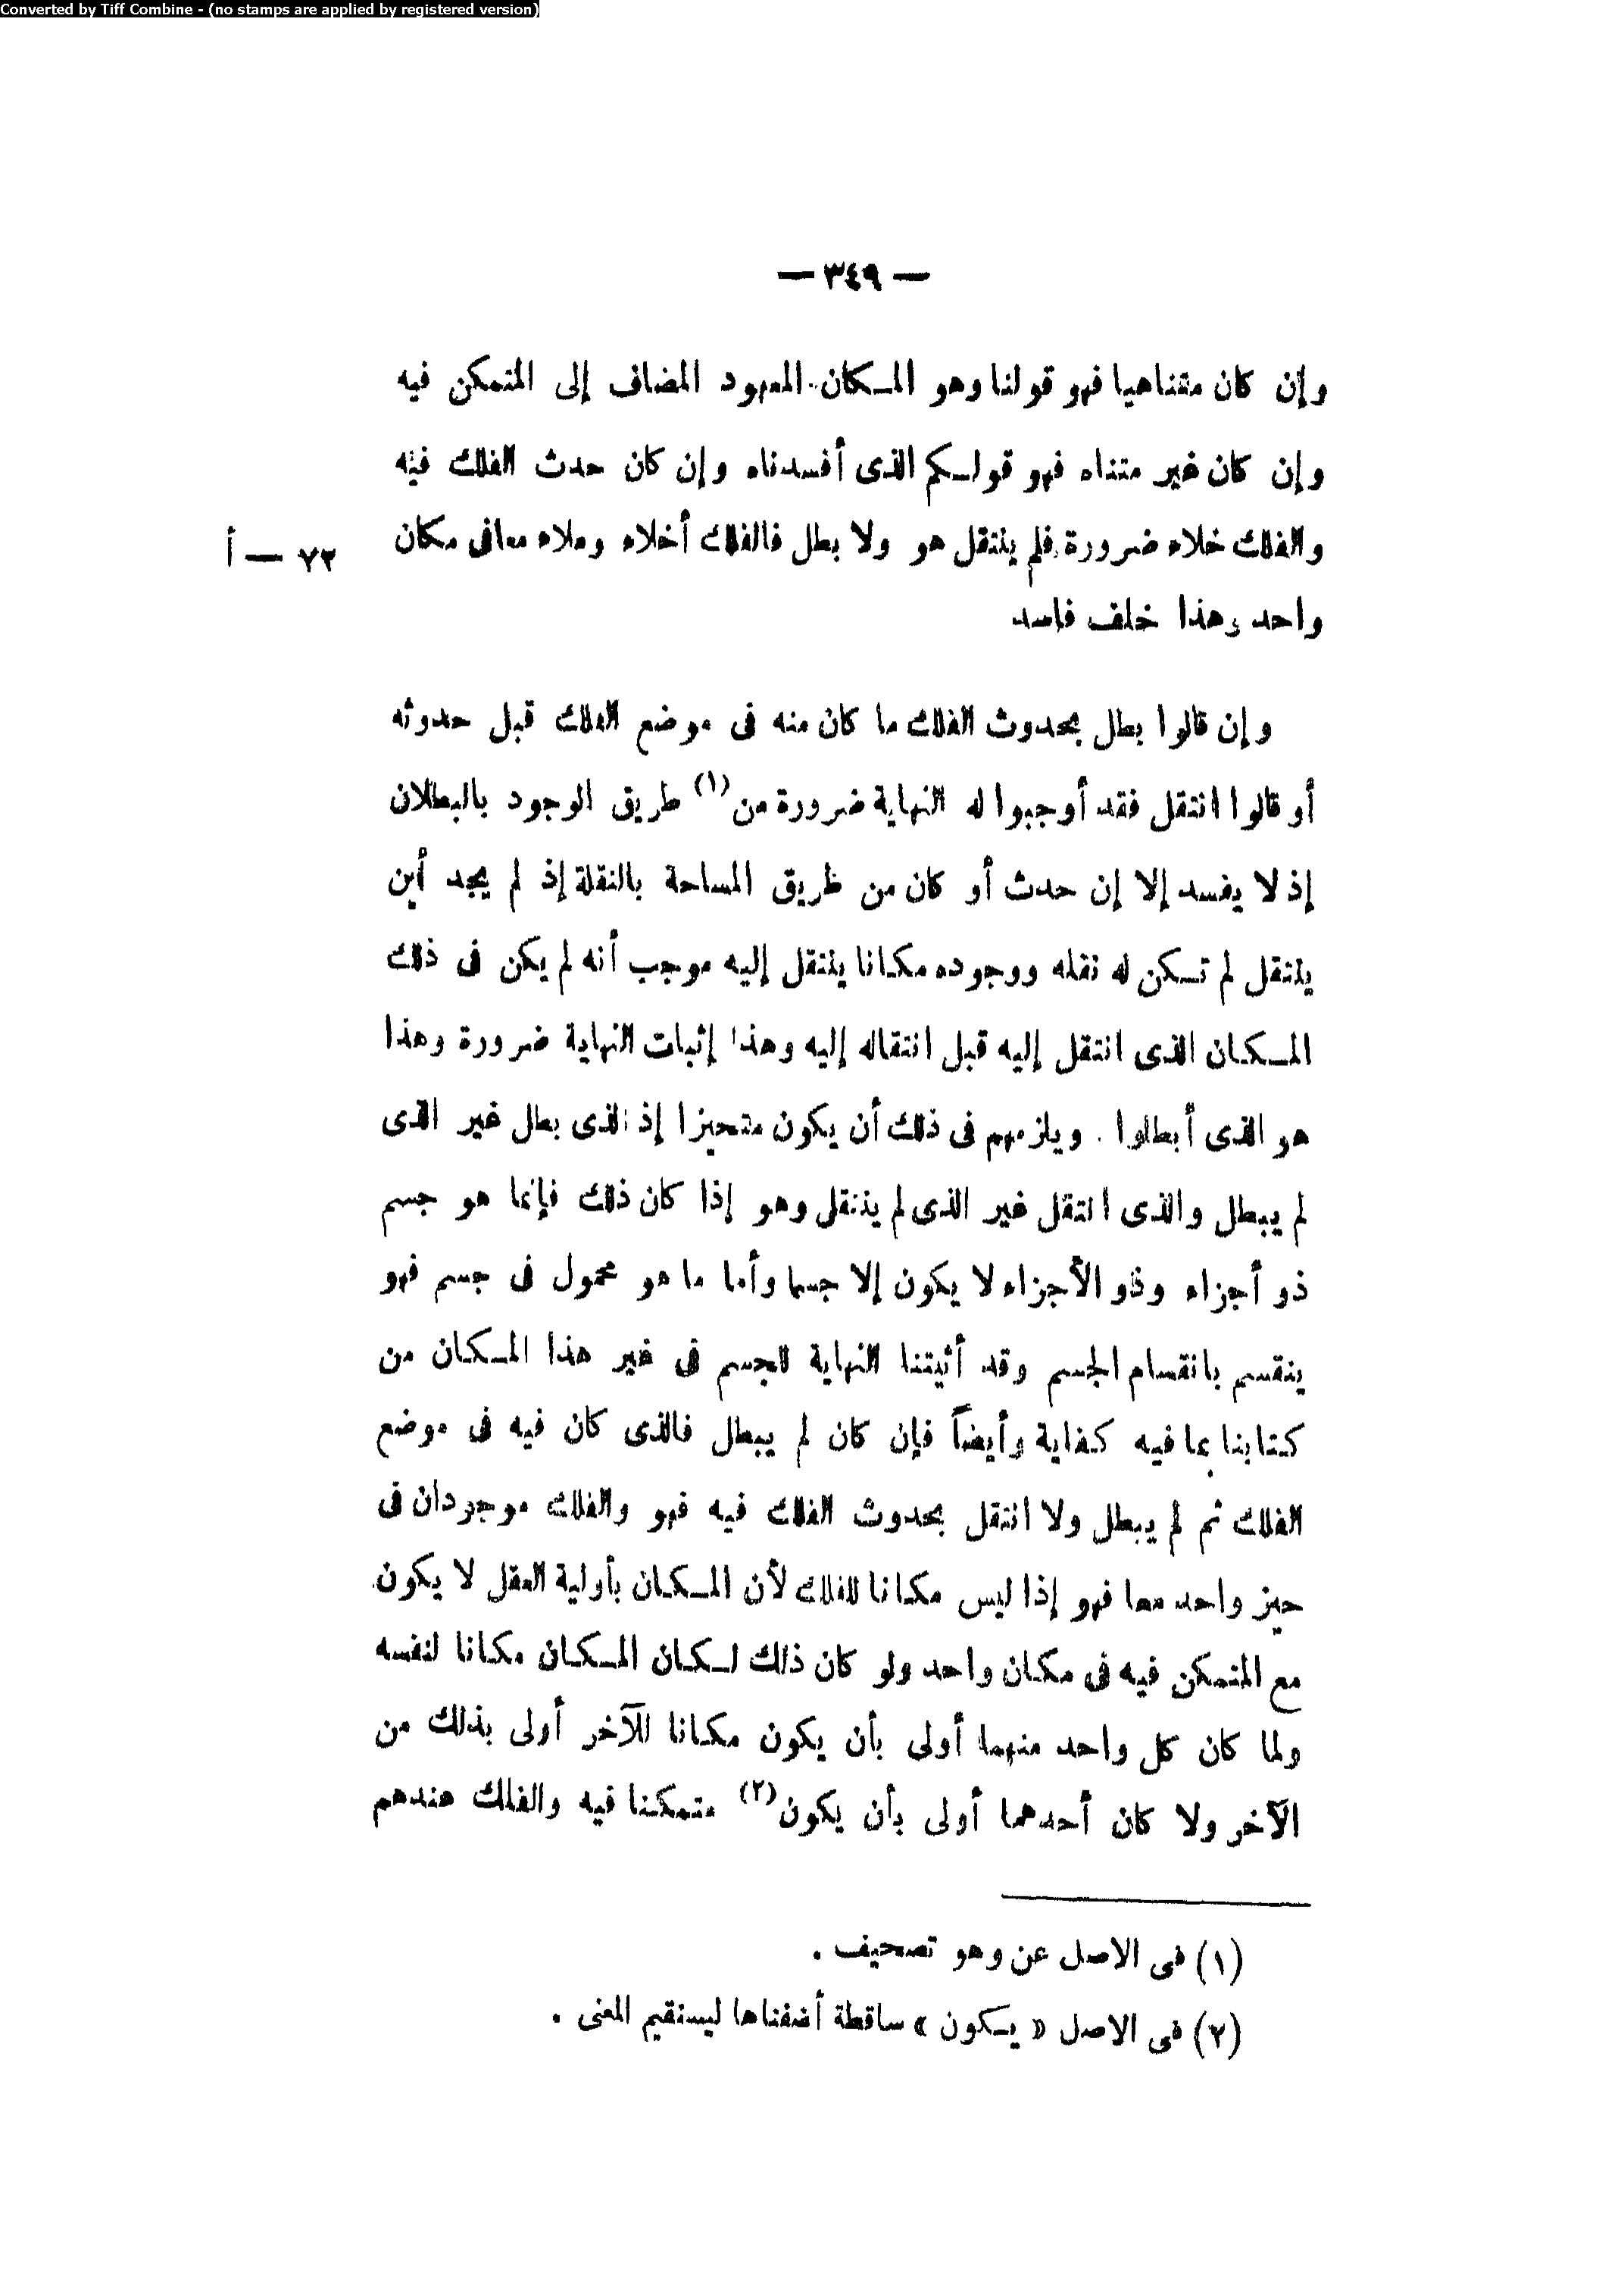 Converted by Tiff Combine - (no stamps are applied by registered version)
— ٣٤٩ —
وإن كان متناهيا فهو قولنا وهو المكان المعهود المضاف إلى المتمكن فيه
وإن كان غير متناه فهو قولكم الذى أفسدناه وإن كان حدث الفلك فيه
والفلك خلاء ضرورة فلم ينتقل هو ولا بطل فالفلك أخلاء وملاء معا فى مكان
٧٢ — أ
واحد وهذا خلف فاسد
وإن قالوا بطل بحدوث الفلك ما كان منه فى موضع الفلك قبل حدوثه
أو قالوا انتقل فقد أوجبوا له النهاية ضرورة من (١) طريق الوجود بالبطلان
إذ لا يفسد إلا إن حدث أو كان من طريق المساحة بالنقلة إذ لم يجد أين
ينتقل لم تكن له نقله ووجوده مكانا ينتقل إليه موجب أنه لم يكن فى ذلك
المكان الذى انتقل إليه قبل انتقاله إليه وهذا إثبات النهاية ضرورة وهذا
هو الذى أبطلوا . ويلزمهم فى ذلك أن يكون متحيزا إذ الذى بطل غير الذى
لم يبطل والذى انتقل غير الذى لم ينتقل وهو إذا كان ذلك فإنما هو جسم
ذو أجزاء وذو الأجزاء لا يكون إلا جسما وأما ما هو محمول فى جسم فهو
ينقسم بانقسام الجسم وقد أثبتنا النهاية للجسم فى غير هذا المكان من
كتابنا بما فيه كفاية وأيضاً فإن كان لم يبطل فالذى كان فيه فى موضع
الفلك ثم لم يبطل ولا انتقل بحدوث الفلك فيه فهو والفلك موجودان فى
حيز واحد معا فهو إذا ليس مكانا للفلك لأن المكان بأولية العقل لا يكون
مع المتمكن فيه فى مكان واحد ولو كان ذلك لكان المكان مكانا لنفسه
ولما كان كل واحد منهما أولى بأن يكون مكانا للآخر أولى بذلك من
الآخر ولا كان أحدهما أولى بأن يكون (٢) متمكنا فيه والفلك عندهم
(١) فى الاصل عن وهو تصحيف .
(٢) فى الاصل « يكون » ساقطة أضفناها ليستقيم المعنى .